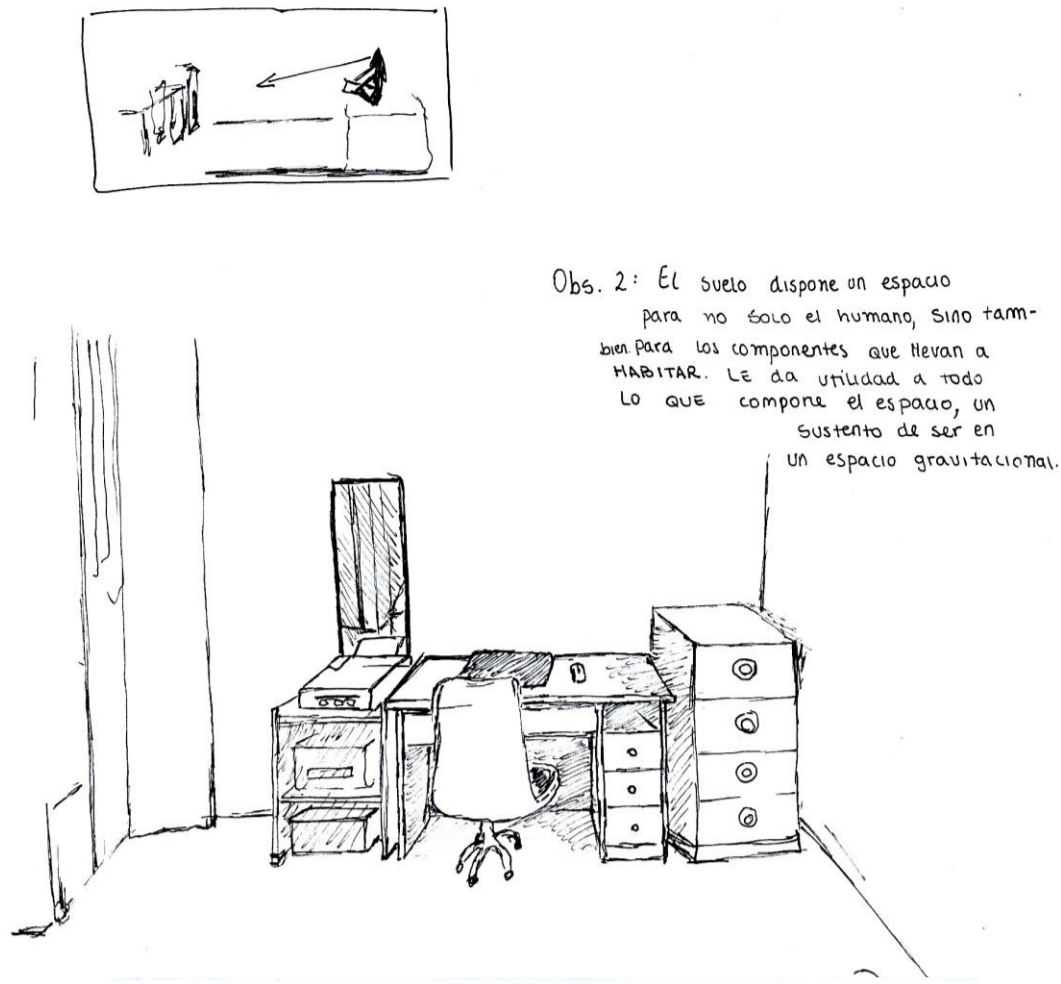 Obs. 2: El suelo dispone un espacio
para no solo el humano, sino tam-
bien para los componentes que llevan a
HABITAR. LE da utilidad a todo
LO QUE compone el espacio, un
sustento de ser en
un espacio gravitacional.